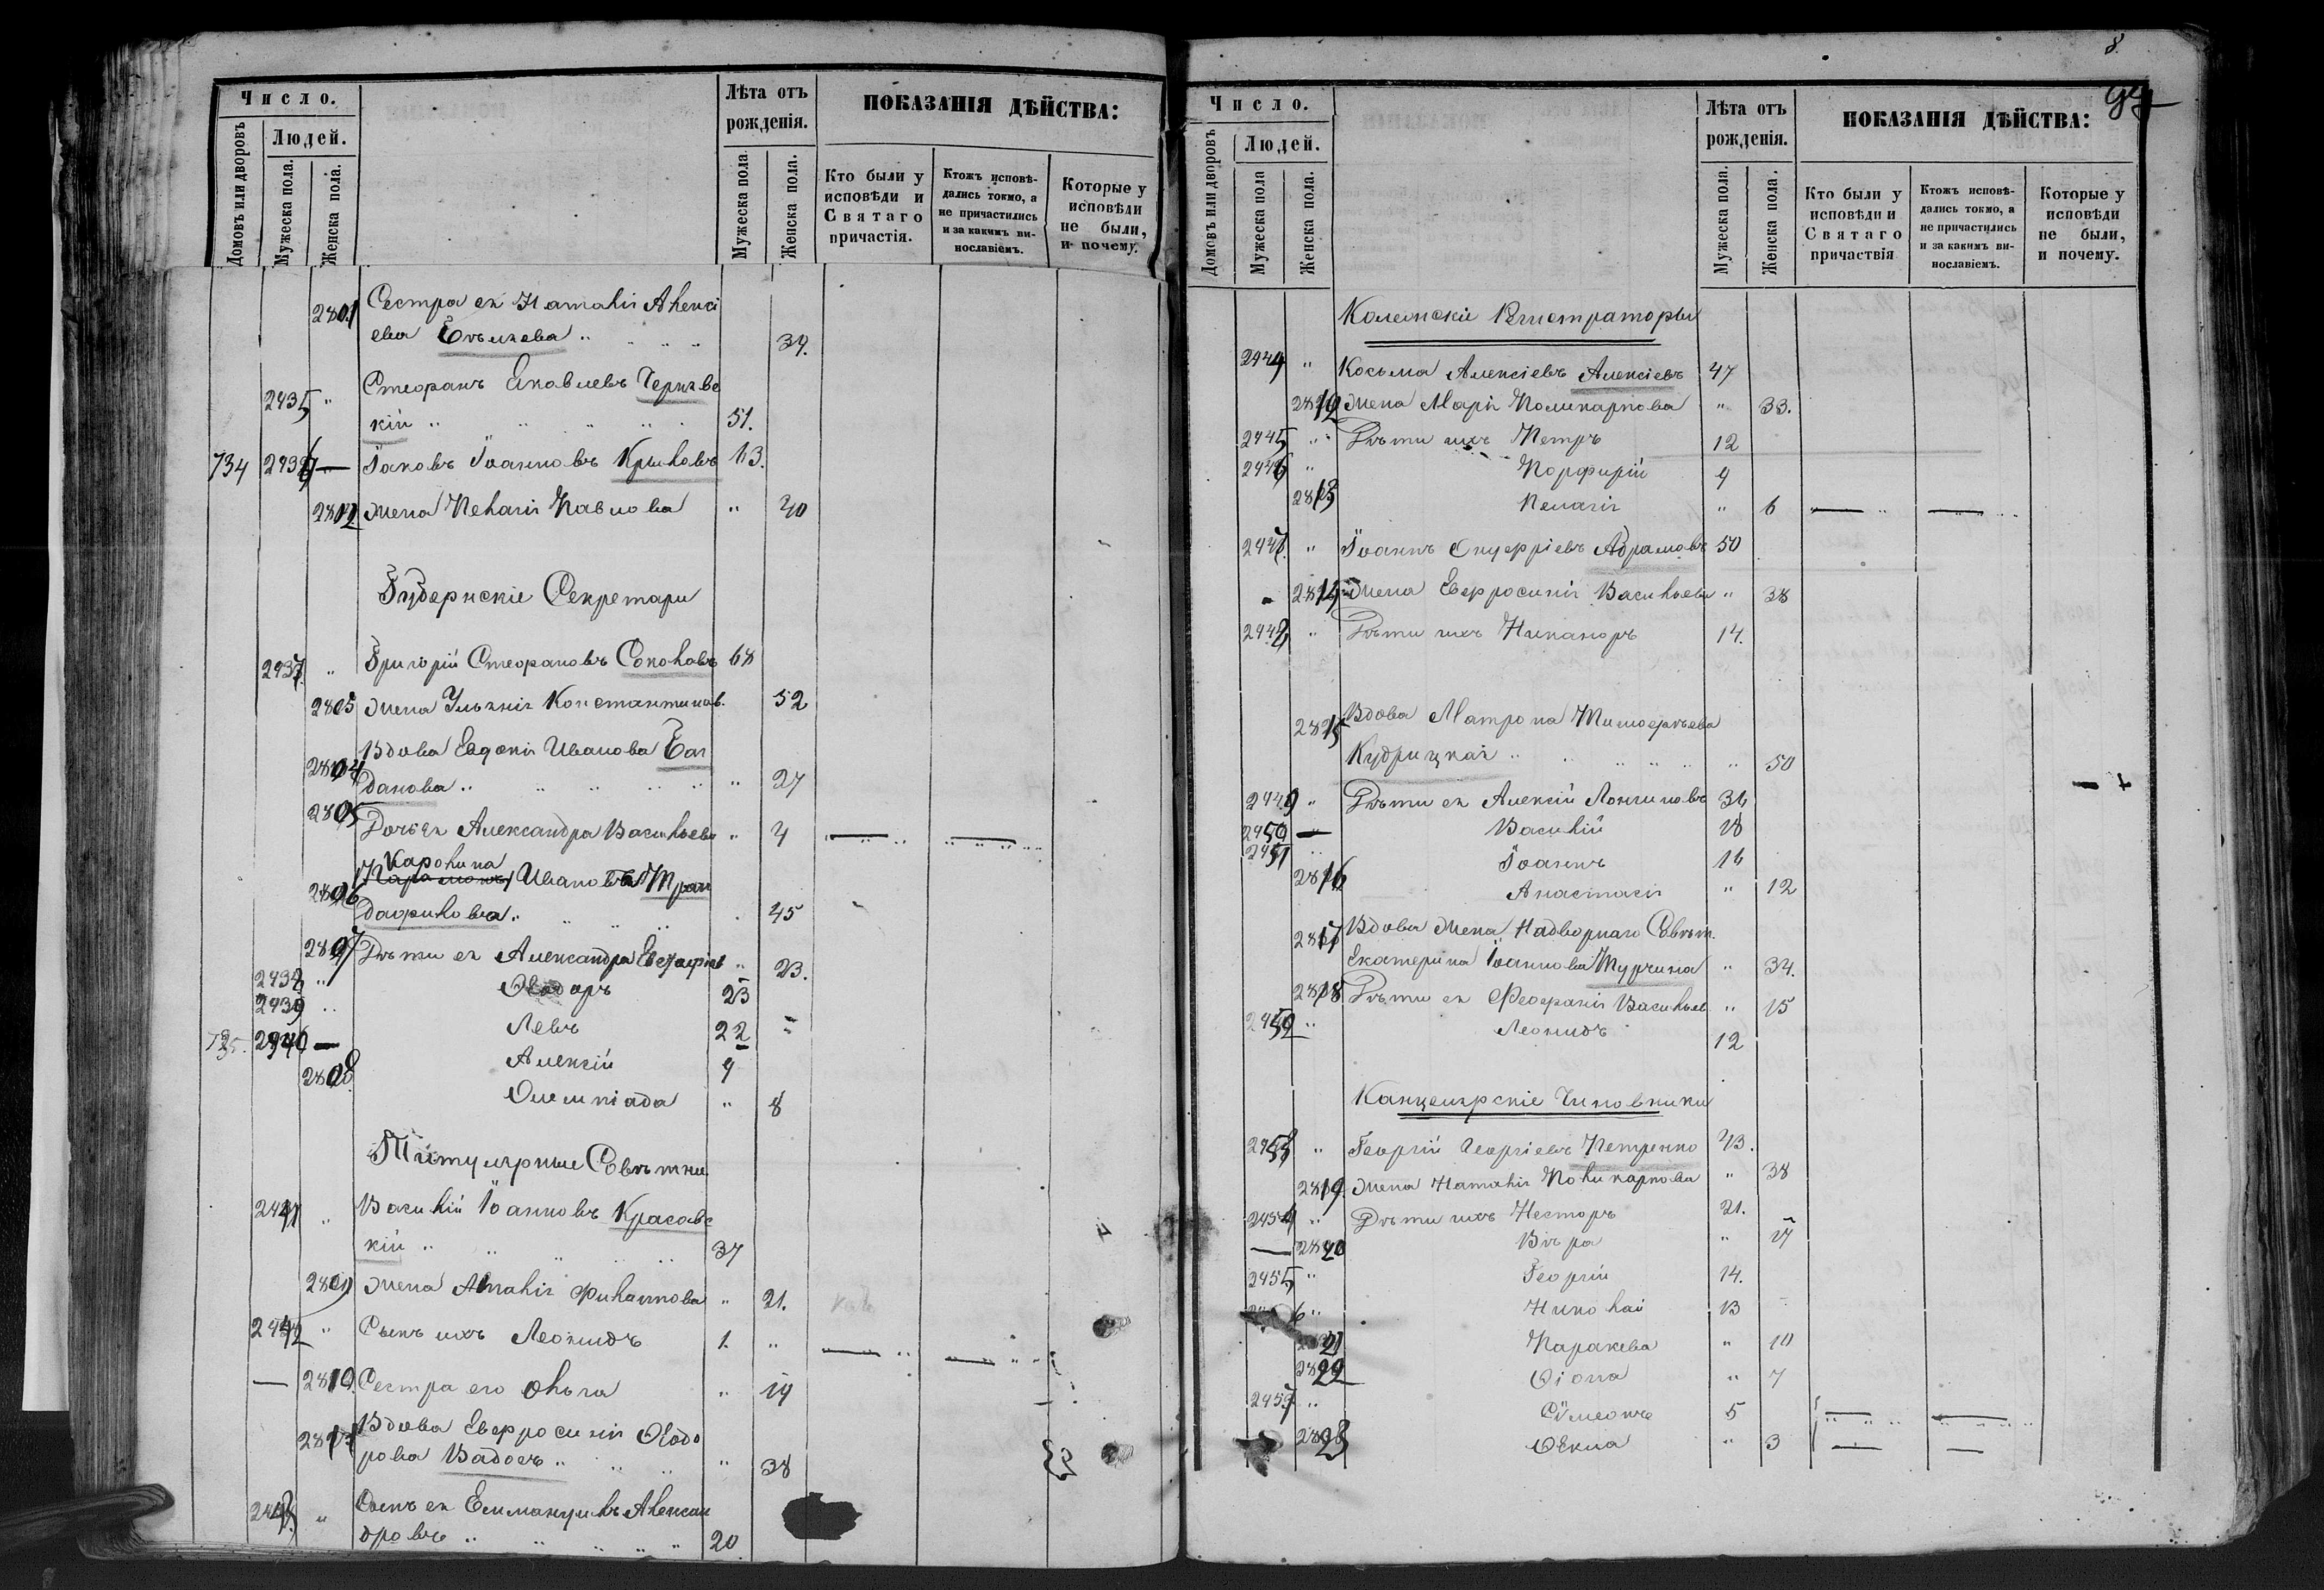 Число.
Людей.
Домовъ или дворовъ
Мужеска пола.
Женска пола.
Лѣта отъ
рожденія.
Мужеска пола
Женска пола.
ПОКАЗАНІЯ ДѢЙСТВА:
Кто были у
исповѣди и
Святаго
причастія.
Ктожъ исповѣ-
дались токмо, а
не причастились
и за какимъ ви-
нославіемъ.
Которые у
исповѣди
не были,
и почему.
2801 Сестра ея Наталія Алексі
ева 34.
2435 " Стефанъ Яковлевъ Чернѣвс
кій " 51.
734 2436 — Іаковъ Іоанновъ Крыловъ 63.
2802 жена Пелагія Павлова " 40
Губернскіе Секретари
2437 " Григорій Стефановъ Соколовъ 68
2803 жена Ульянія Константинов. 52
2804 Вдова Евдокія Иванова Бог
данова " 27
2805 Дочь ея Александра Васильева " 4
2806 Каролина Иванова
45
2807 Дѣти ея Александра " 23.
2438 " Ѳеодоръ 23
2439 " Левъ 22
735. 2440 — Алексій 9
2808 Олимпіада " 8
Титулярные Совѣтни
2441 " Василій Іоанновъ Красовс
кій " 37
2809 жена Филиппова " 21.
2442 " Сынъ ихъ Леонидъ 1. "
— 2810 Сестра его Ольга " 19
2811 Вдова Евфросинія Ѳеодо
рова " 38
2443 " Сынъ ея Алексан
дровъ " 20
8
Число.
Людей.
Домовъ или дворовъ
Мужеска пола
Женска пола.
Лѣта отъ
рожденія.
Мужеска пола.
Женска пола.
ПОКАЗАНІЯ ДѢЙСТВА:
Кто были у
исповѣди и
Святаго
причастія
Ктожъ исповѣ-
дались токмо, а
не причастились
и за какимъ ви-
нославіемъ.
Которые у
исповѣди
не были,
и почему.
Колежскіе Регистраторы
2444 " Косьма Алексіевъ Алексіевъ 47
2812 жена Марія Поликарпова " 33.
2445 " Дѣти ихъ Петръ 12
2446 " Порфирій 9
2813 Пелагія " 6
2447 " Іоаннъ Онуфріевъ Абрамовъ 50
2814 жена Евфросинія Васильева " 38
2448 " Дѣти ихъ Никаноръ 14.
2815 Вдова Матрона Тимофѣева
Кудрицкая " 50
2449 " Дѣти ея Алексій Лонгиновъ
2450 — Василій 18
2451 " Іоаннъ 16
2816 Анастасія " 12
2817 Вдова жена Надворнаго Совѣт.
Екатерина Іоаннова Турчина " 34.
2818 Дѣти ея Феофанія Васильев " 15
2452 " Леонидъ 12
Канцелярскіе Чиновники
2453 " Георгій Георгіевъ Петренко 43.
2819 жена Наталія Поликарпова " 38
2454 " Дѣти ихъ Несторъ 21.
— 2820 Вѣра " 17
2455 " Георгій 14.
6 " Николай 13
21 Параскева " 10
2822 " 7
2457 " Сімеонъ 5
2823 Ѳекла " 3